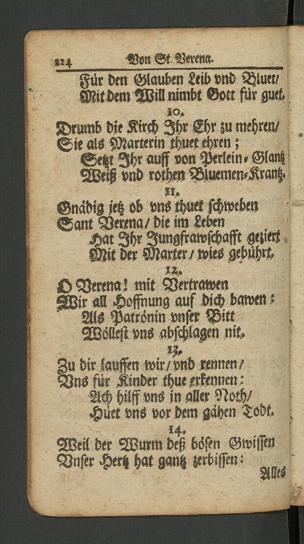 224 Von St Verena.
Für den Glauben Leib vnd Bluet/
Mit dem Will nimbt Gott für guet.
10.
Drumb die Kirch Ihr Ehr zu mehren/
Sie als Marterin thuet ehren;
Setzt Ihr auff von Perlein-Glantz
Weiß vnd rothen Bluemen-Krantz.
11.
Gnädig jetz ob vns thuet schweben
Sant Verena/ die im Leben
Hat Ihr Jungfrawschafft geziert
Mit der Marter/ wies gebührt.
12.
O Verena! mit Vertrawen
Wir all Hoffnung auf dich bawen:
Als Patrónin vnser Bitt
Wöllest vns abschlagen nit.
13.
Zu dir lauffen wir/ vnd rennen/
Vns für Kinder thue erkennen:
Ach hilff vns in aller Noth/
Hüet vns vor dem gähen Todt.
14.
Weil der Wurm deß bösen Gwissen
Vnser Hertz hat gantz zerbissen:
Alles